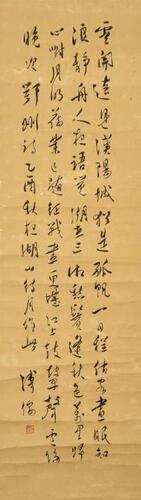 雲開遠見漢陽城猶是孤帆一日程估客晝眠知
浪靜舟人夜語覺潮生三湘愁鬢逢秋色萬里歸
心對月明舊業已隨征戰盡更堪江上鼓鼙聲
晚次鄂州詩乙酉秋湖山待月作此 溥儒